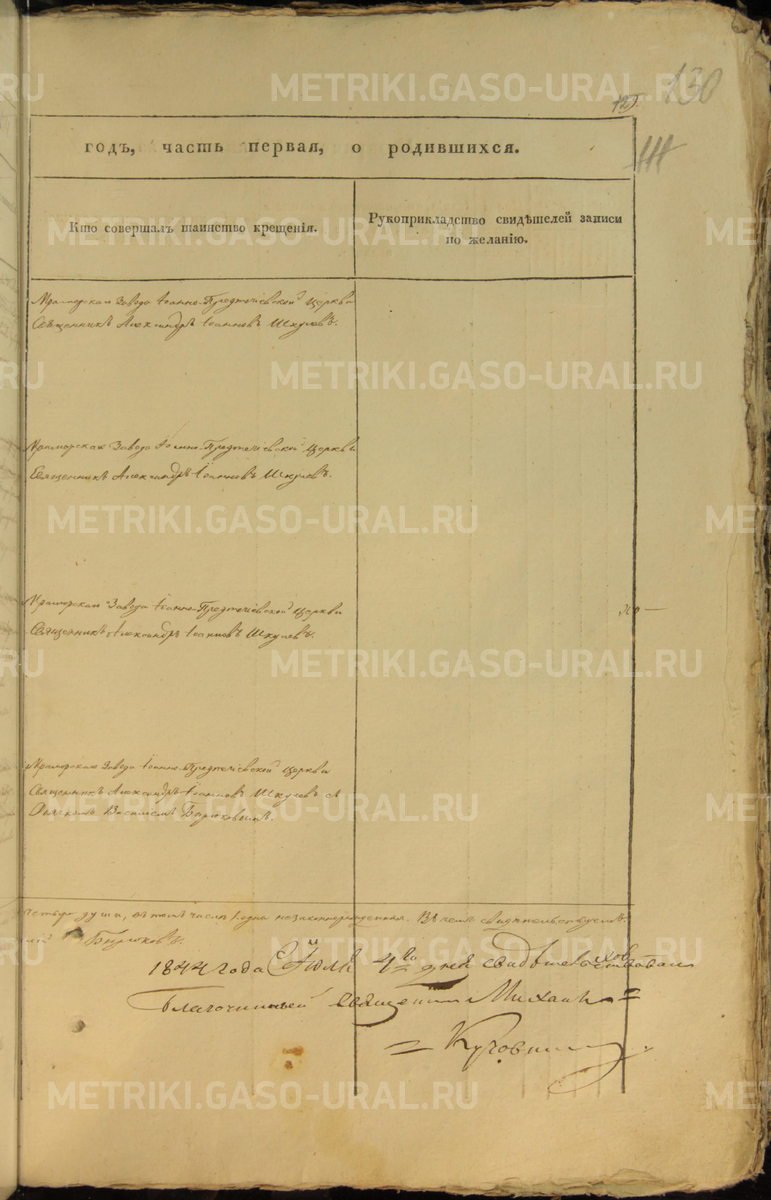 130
129
годъ, часть первая, о родившихся.
Кто совершалъ таинство крещенія.
Рукоприкладство свидѣтелей записи по желанію.
Мраморскаго Завода Іоанно-Предтечіевской церкви
Священникъ Александръ Іоанновъ Шкулевъ.
Мраморскаго Завода Іоанно-Предтечіевской церкви
Священникъ Александръ Іоанновъ Шкулевъ.
Мраморскаго Завода Іоанно-Предтечіевской церкви
Священникъ Александръ Іоанновъ Шкулевъ.
Мраморскаго Завода Іоанно-Предтечіевской церкви
Священникъ Александръ Іоанновъ Шкулевъ съ
Дьячкомъ Василіемъ Бирюковымъ.
четыре души, въ томъ числѣ одна незаконнорожденная. Въ чемъ свидѣтельствуемъ
Бирюковъ.
1844 года 4го дня свидѣтельствовалъ
Благочинный Священникъ Михаилъ
METRIKI.GASO-URAL.RU